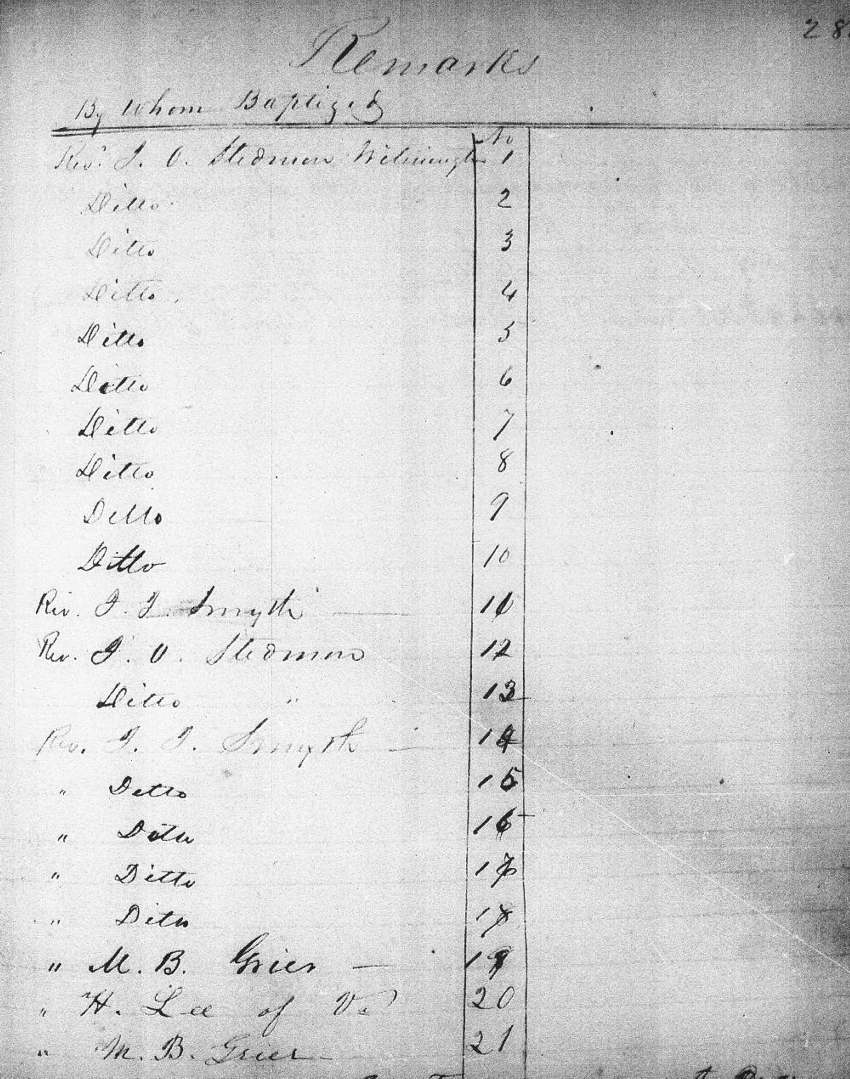 28
Remarks
By Whom Baptized
No
Rev. J. O. Stedman Wilmington 1
Ditto 2
Ditto 3
Ditto 4
Ditto 5
Ditto 6
Ditto 7
Ditto 8
Ditto 9
Ditto 10
Rev. J. J. Smyth — 11
Rev. J. O. Stedman 12
Ditto " 13
Rev. J. J. Smyth — 14
" Ditto 15
" Ditto 16
" Ditto 17
" Ditto 18
" M. B. Grier — 19
" H. Lee of Va 20
" M. B. Grier — 21